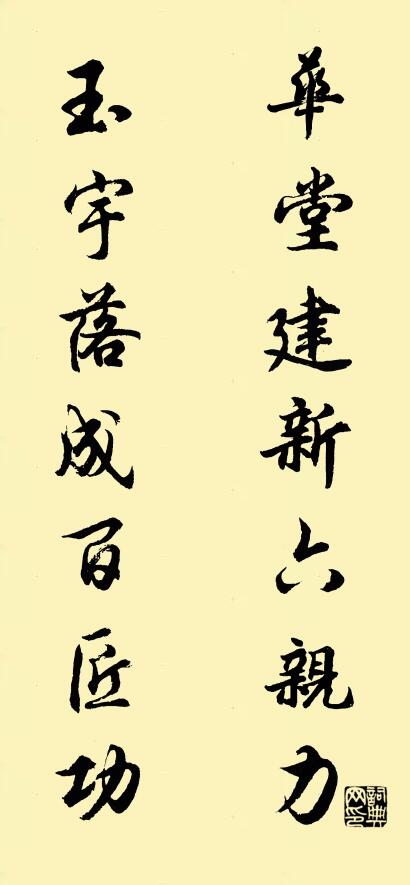 華堂建新六親力
玉宇落成百匠功
詞典网印